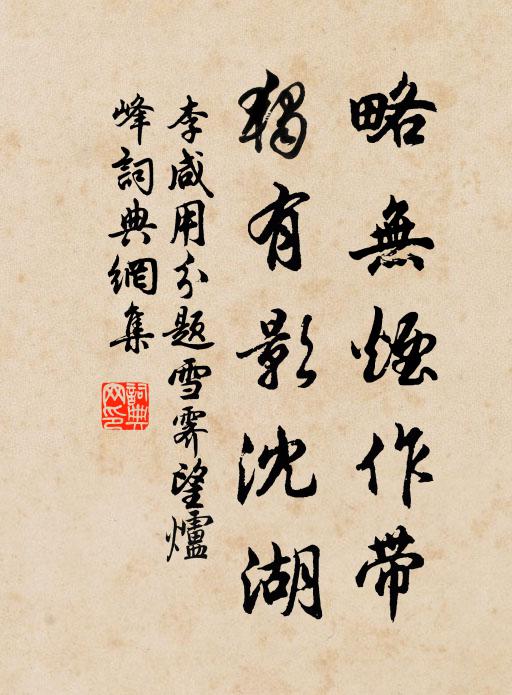 略無煙作帶
獨有影沈湖
李咸用分題雪霽望爐
峰詞典網集
詞典网印